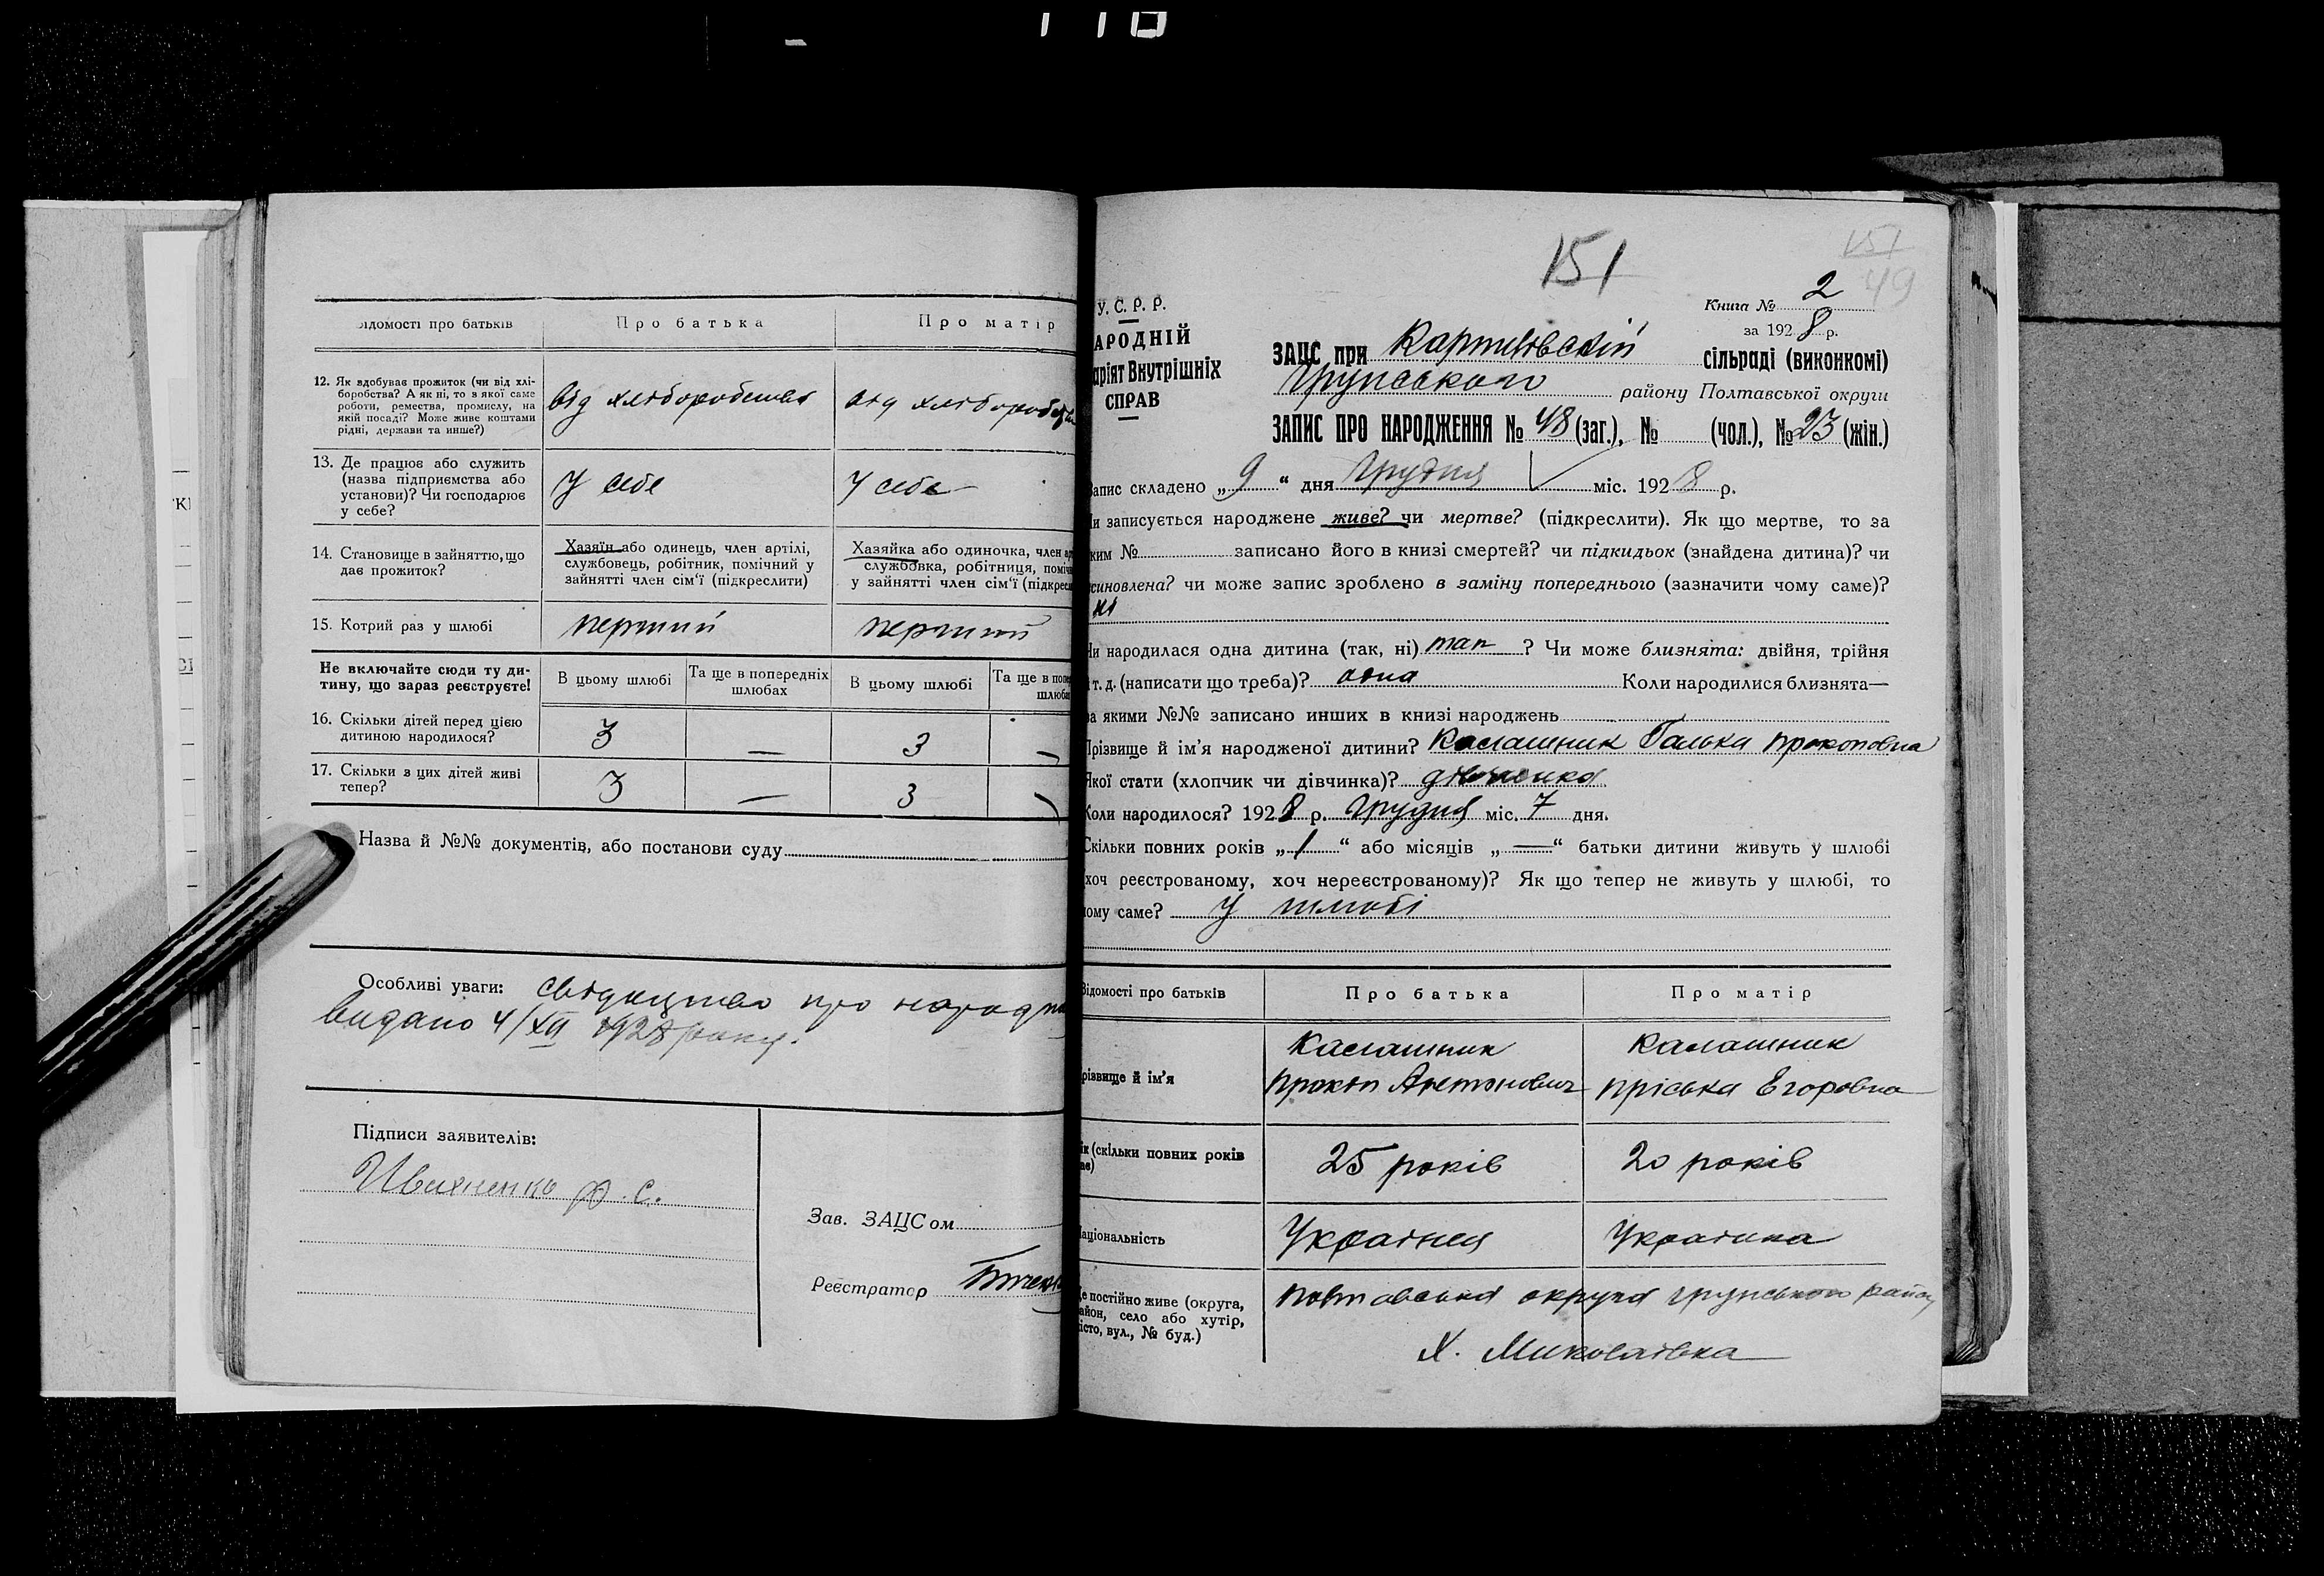 ідомості про батьків
Про батька
Про матір
12. Як здобуває прожиток (чи від хлі-
боробства? А як ні, то з якої саме
роботи, ремества, промислу, на
якій посаді? Може живе коштами
рідні, держави та инше?)
від хліборобства
від хлібороб
13. Де працює або служить
(назва підприємства або
установи)? Чи господарює
у себе?
У себе
У себе
14. Становище в зайняттю, що
дає прожиток?
Хазяїн або одинець, член артілі,
службовець, робітник, помічний у
зайнятті член сім'ї (підкреслити)
Хазяйка або одиночка, член ар
службовка, робітниця, поміч
у зайнятті член сім'ї (підкресл
15. Котрий раз у шлюбі
перший
перший
Не включайте сюди ту ди-
тину, що зараз реєструєте!
В цьому шлюбі
Та ще в попередніх
шлюбах
В цьому шлюбі
Та ще в попе
шлюбах
16. Скільки дітей перед цією
дитиною народилося?
3 — 3 —
17. Скільки з цих дітей живі
тепер?
3 — 3 —
Назва й №№ документів, або постанови суду
Особливі уваги: свідоцтво про народж
видано 4/XII 1928 року.
Підписи заявителів:
Ивахненко
Зав. ЗАЦСом
Реєстратор
151
151
49
Книга № 2
за 1928 р.
У. С. Р. Р.
АРОДНІЙ
аріят Внутрішніх
СПРАВ
ЗАЦС при сільраді (виконкомі)
Грунського району Полтавської округи
ЗАПИС ПРО НАРОДЖЕННЯ № 48 (заг.), № (чол.), № 23 (жін.)
Запис складено „9“ дня Грудня міс. 1928 р.
Чи записується народжене живе? чи мертве? (підкреслити). Як що мертве, то за
яким № записано його в книзі смертей? чи підкидьок (знайдена дитина)? чи
усиновлена? чи може запис зроблено в заміну попереднього (зазначити чому саме)?
ні
Чи народилася одна дитина (так, ні) так ? Чи може близнята: двійня, трійня
і т. д. (написати що треба)? одна Коли народилися близнята—
за якими №№ записано инших в книзі народжень
Прізвище й ім'я народженої дитини? Калашник Галька прокоповна
Якої стати (хлопчик чи дівчинка)? дівчинка
Коли народилося? 1928 р. Грудня міс. 7 дня.
Скільки повних років „1“ або місяців „—“ батьки дитини живуть у шлюбі
(хоч реєстрованому, хоч нереєстрованому)? Як що тепер не живуть у шлюбі, то
чому саме? У шлюбі
Відомості про батьків
Про батька
Про матір
різвище й ім'я
Калашник
прокоп Антонович
Калашник
пріська Егоровна
ік (скільки повних років
ає)
25 років
20 років
аціональність
Україня
Україна
е постійно живе (округа,
айон, село або хутір,
істо, вул., № буд.)
полтавська округа грунського району
Х. Миколаівка